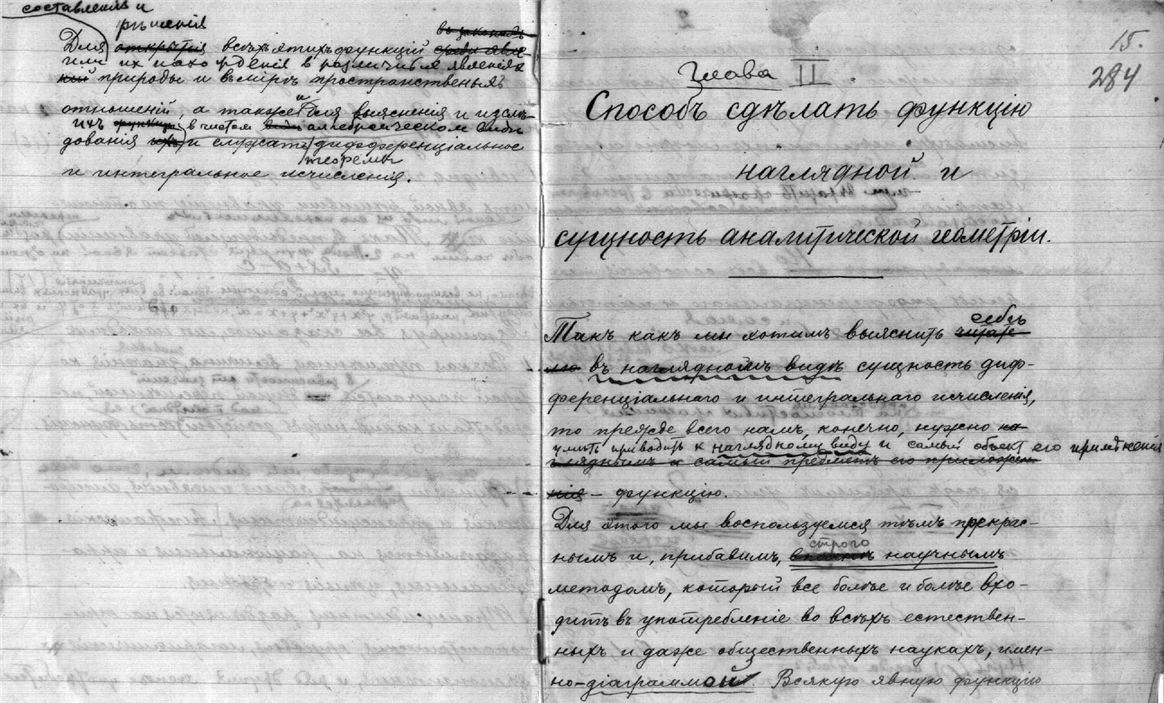 составленія и
рѣшенія
въ законахъ
Для открытія всѣхъ этихъ функцій
или их нахожденія в различныхъ явленіях
природы и въ мірѣ пространственныхъ
отношеній, а также и для выясненія и изслѣ-
ихъ функціи в чистом алгебраическом видѣ
дования и служатъ дифференціальное
теоремы
и интегральное исчисления.
15.
284
Глава II
Способъ сдѣлать функцію
наглядной и
сущность аналитической геометріи.
себѣ
Такъ какъ мы хотимъ выяснить
въ наглядномъ видѣ сущность диф-
ференціального и интегрального исчисленія,
то прежде всего намъ, конечно, нужно на-
умѣть приводить к наглядному виду и самый объект его примѣненія
гляднымъ и самый предметъ его приложен-
нія – функцію.
Для этого мы воспользуемся тѣмъ прекрас-
строго
нымъ и, прибавимъ, научнымъ
методомъ, который все болѣе и болѣе вхо-
дитъ въ употребленіе во всѣхъ естествен-
ныхъ и даже общественныхъ наукахъ, имен-
но-діаграммой. Всякую явную функцію